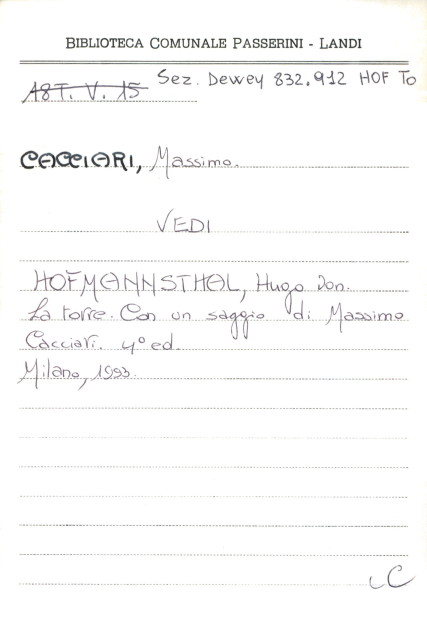 BIBLIOTECA COMUNALE PASSERINI - LANDI
A8T. V. 15 Sez. Dewey 832.912 HOF To
CACCIARI, Massimo.
VEDI
HOFMANNSTHAL, Hugo Von.
La torre. Con un saggio di Massimo
Cacciari. 4° ed.
Milano, 1993.